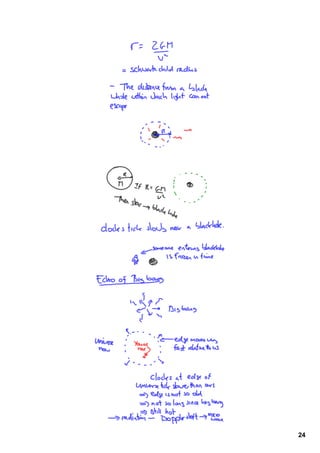 r = 2GM
v²
= schwartzchild radius
- The distance from a black
whole within which light can not
escape
R
M
If R = GM
v²
Then star → black hole
clocks tick slowly near a blackhole.
someone entering blackhole
is frozen in time
Echo of Big bang
Big bang
Universe
now
You're
here
edge moving
fast relative to us
clocks at edge of
Universe tick slower than ours
⇒ edge is not so old
⇒ not so long since big bang
⇒ still hot
→ radiation — Doppler shift → micro
wave
24